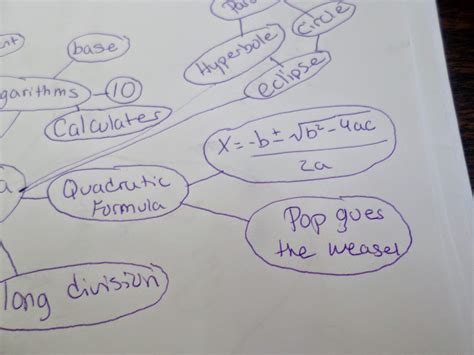 Para
Circle
base
Hyperbole
garithms
10
eclipse
Calculates
X = -b ± √b² - 4ac
2a
Quadrutic
Formula
Pop gues
the weasel
long division